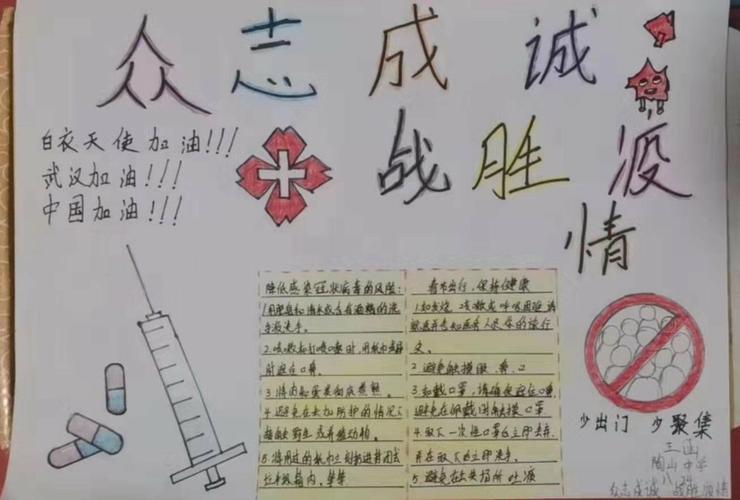 众志成诚
战胜疫
情
白衣天使加油!!!
武汉加油!!!
中国加油!!!
降低感染冠状病毒的风险:
1.用肥皂和清水或含有酒精的洗
手液洗手。
2.咳嗽或打喷嚏时,用纸巾或
时遮住口鼻。
3.将肉和蛋类彻底煮熟。
4.避免在未加防护的情况下
接触野生或养殖动物。
春节出行,保持健康
1.如发烧、咳嗽或呼吸困难
2.避免触摸眼、鼻、口
3.如戴口罩,请确保遮住口鼻
避免在佩戴时触摸口罩
4.取下一次性口罩后立即丢弃,
并在取下后立即洗手。
5.避免在公共场所吐痰
少出门 少聚集
陶山中学
众志成诚 战胜疫情